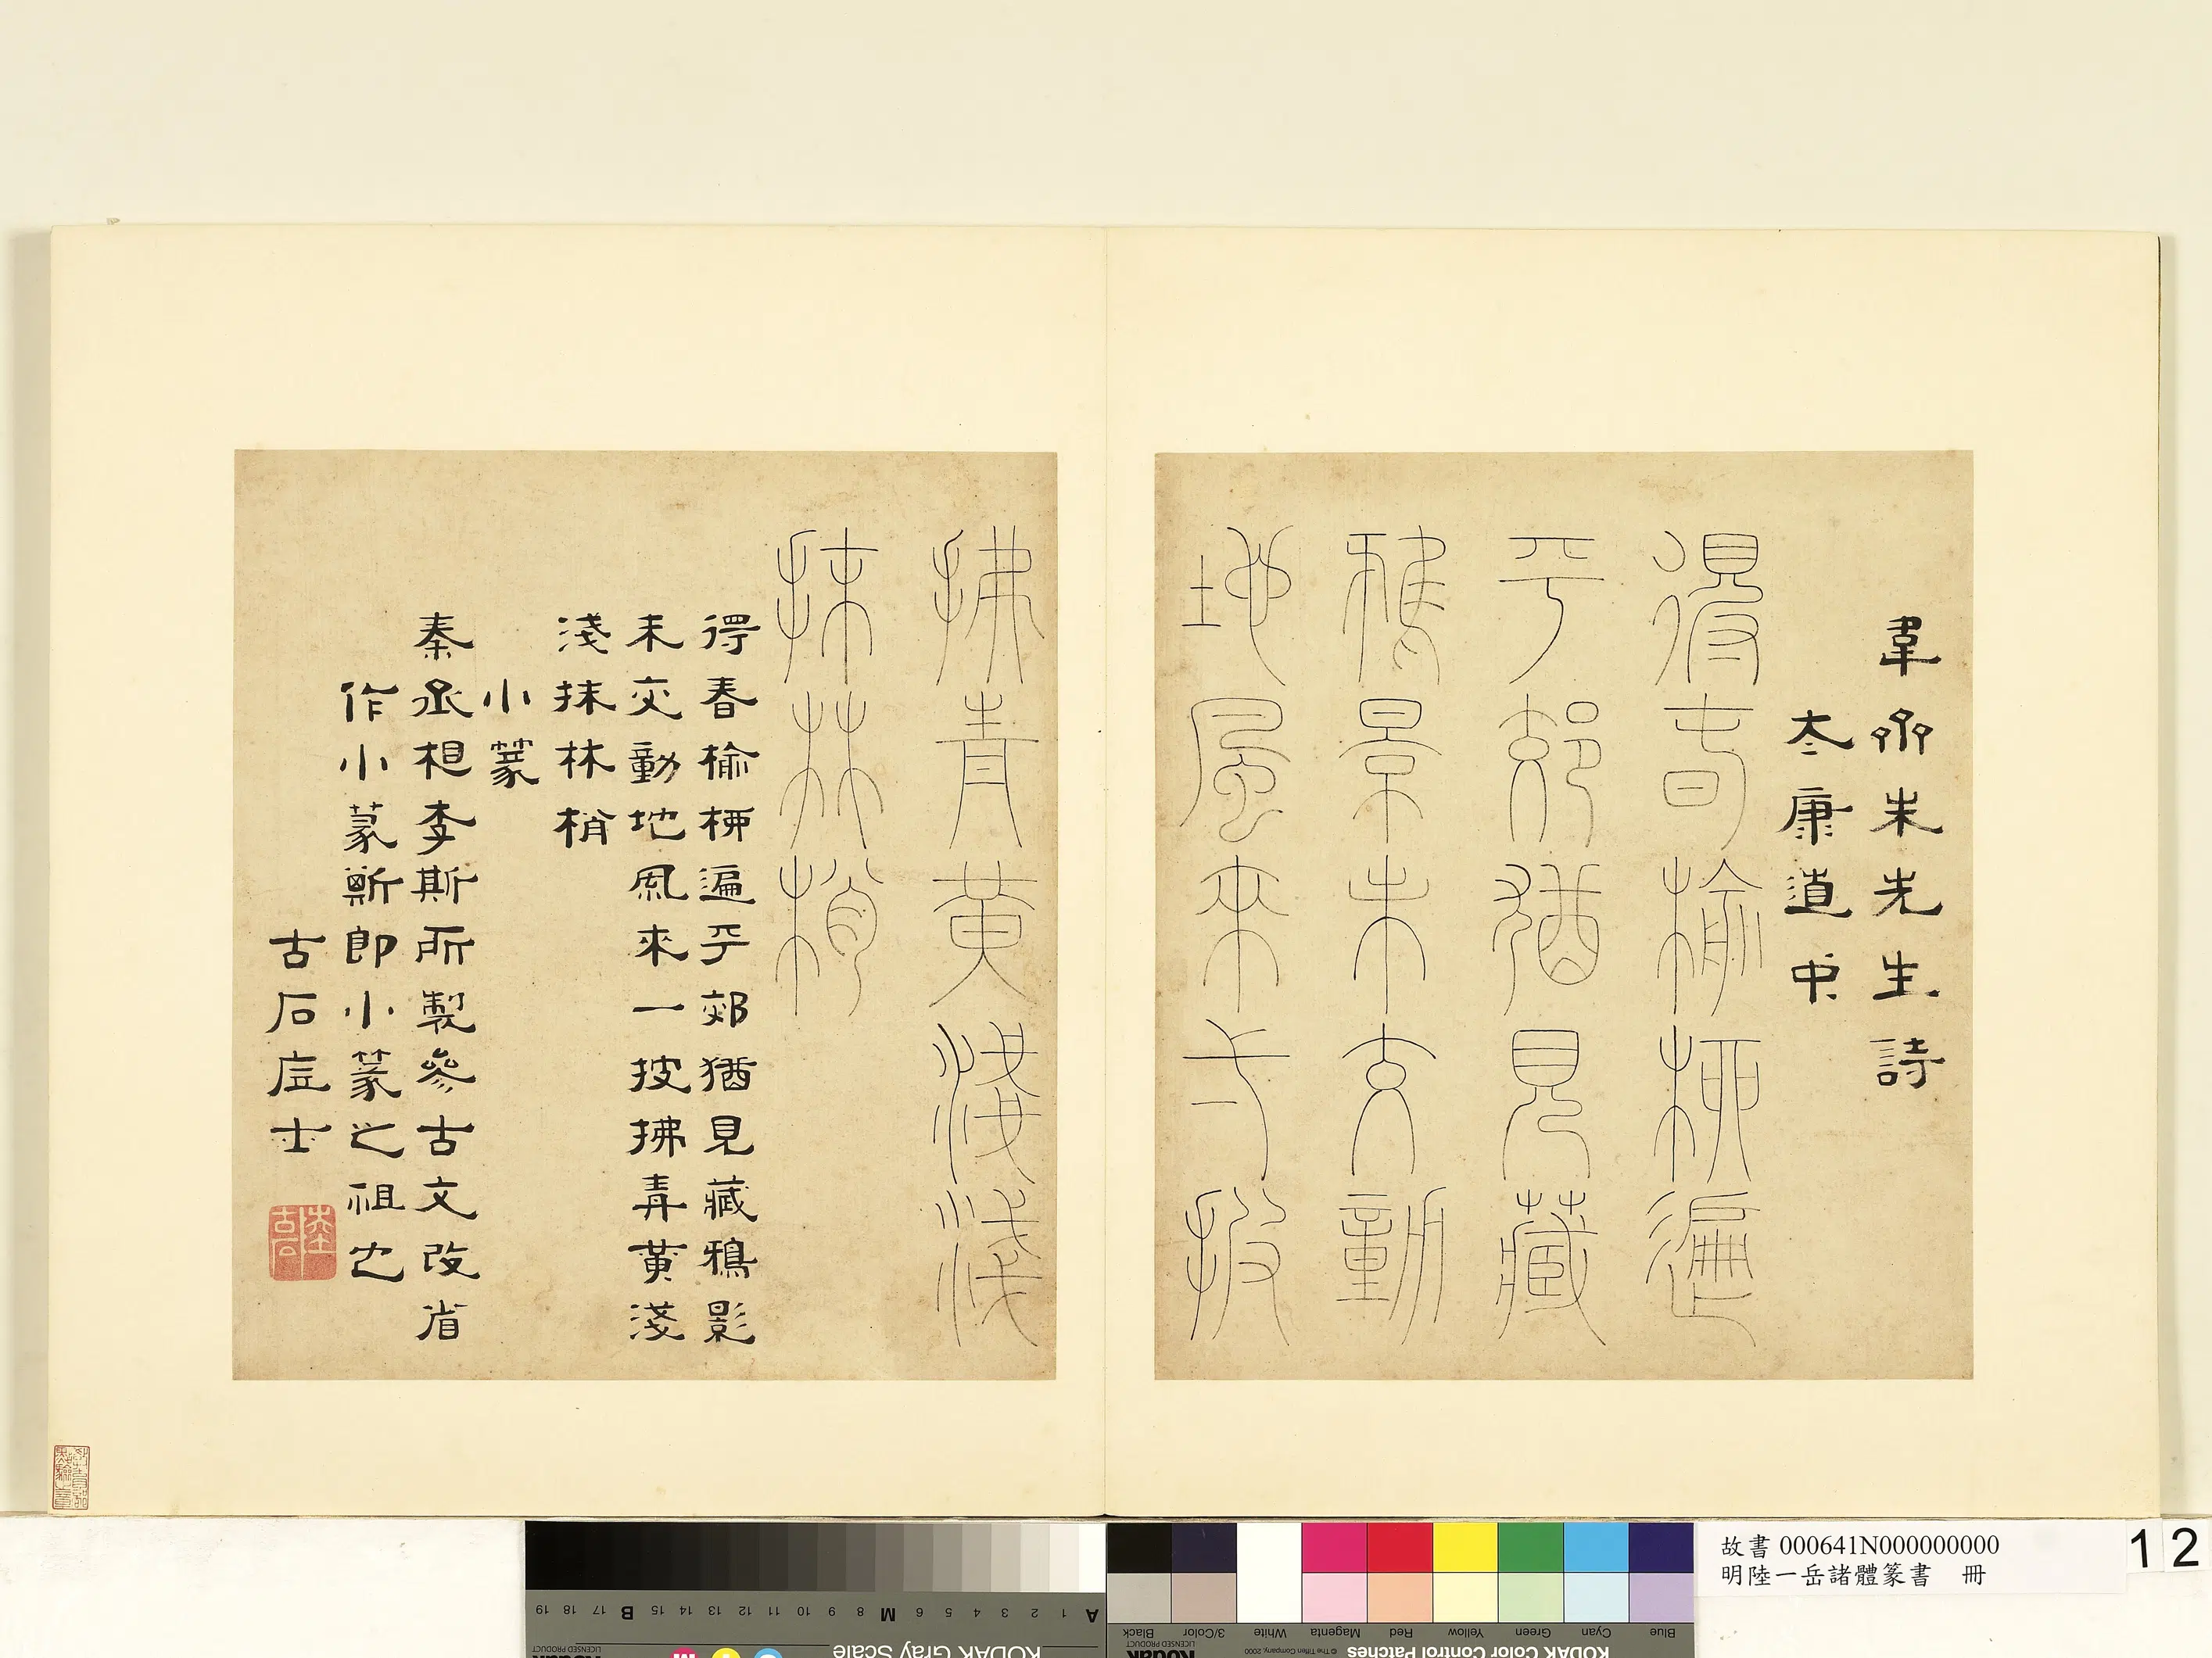 韋齋朱先生詩
太康道中
得春榆柳遍
平郊猶見藏
鴉景未交動
地風來一披
拂青黃淺淺
抹林梢
得春榆柳遍平郊猶見藏鴉影
未交動地風來一披拂青黃淺
淺抹林梢
小篆
秦丞相李斯所製參古文改省
作小篆斯即小篆之祖也
古石士
陸古石
教育部點驗之章
故書 000641N000000000
明陸一岳諸體篆書 冊
12
KODAK Gray Scale
A 1 2 3 4 5 6 M 8 9 10 11 12 13 14 15 B 17 18 19
KODAK Color Control Patches
Blue Cyan Green Yellow Red Magenta White 3/Color Black
© The Tiffen Company, 2000
Kodak
LICENSED PRODUCT